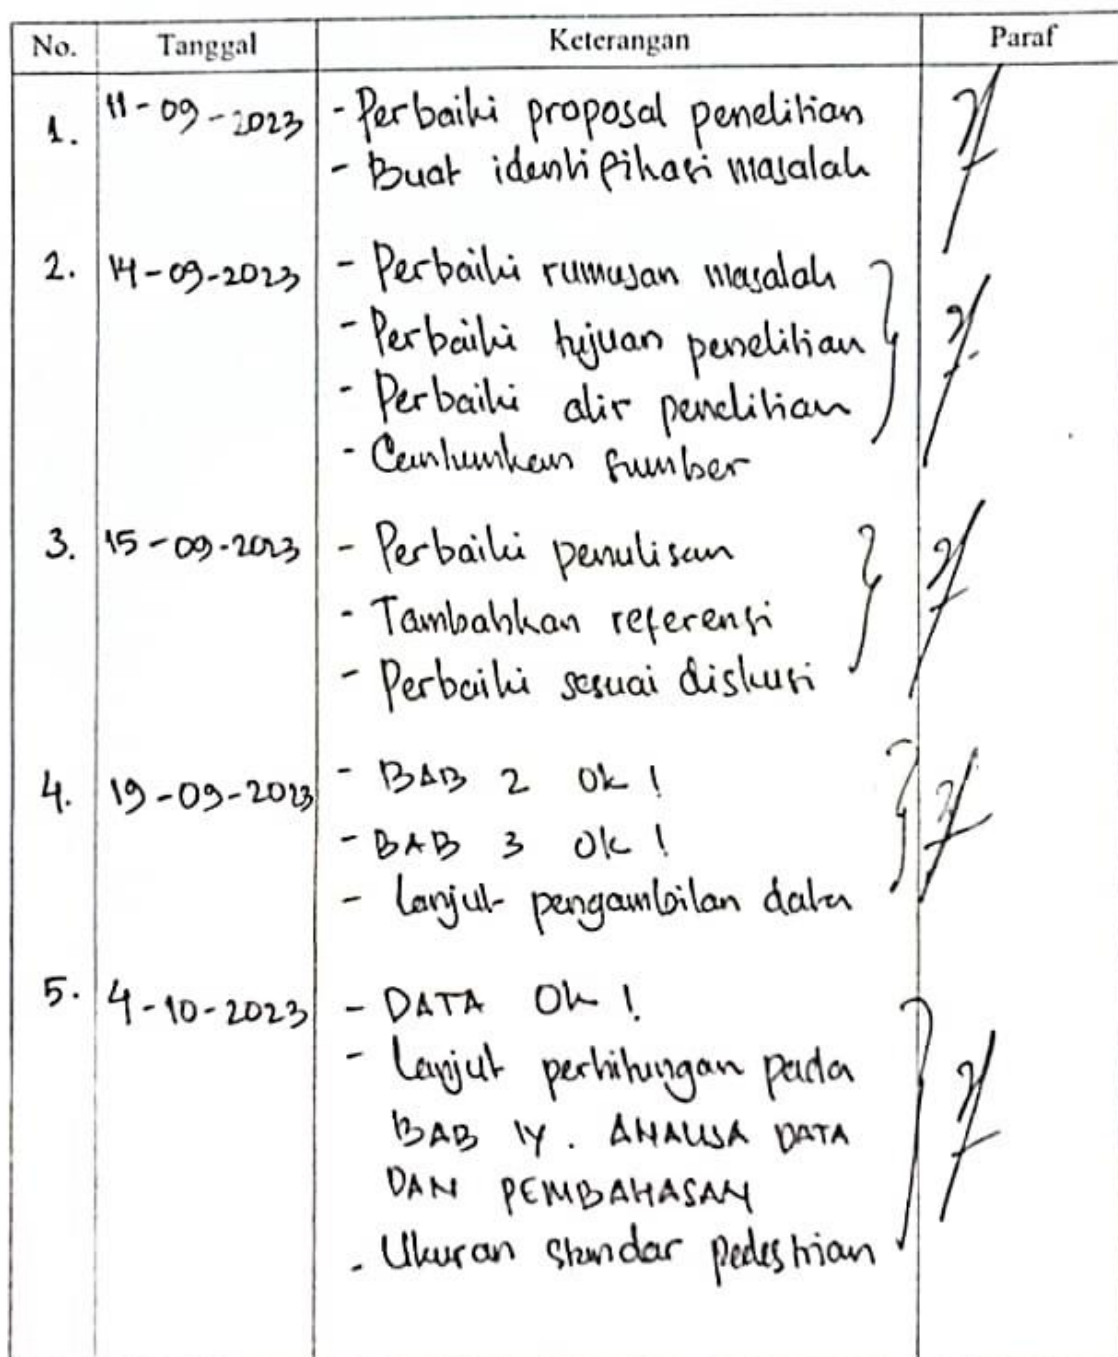 No. Tanggal Keterangan Paraf
1. 11-09-2023 - Perbaiki proposal penelitian
- Buat identifikasi masalah
2. 14-09-2023 - Perbaiki rumusan masalah
- Perbaiki tujuan penelitian
- Perbaiki alir penelitian
- Cantumkan sumber
3. 15-09-2023 - Perbaiki penulisan
- Tambahkan referensi
- Perbaiki sesuai diskusi
4. 19-09-2023 - BAB 2 Ok !
- BAB 3 Ok !
- Lanjut pengambilan data
5. 4-10-2023 - DATA Ok !
- Lanjut perhitungan pada
BAB IV. ANALISA DATA
DAN PEMBAHASAN
- Ukuran standar pedestrian